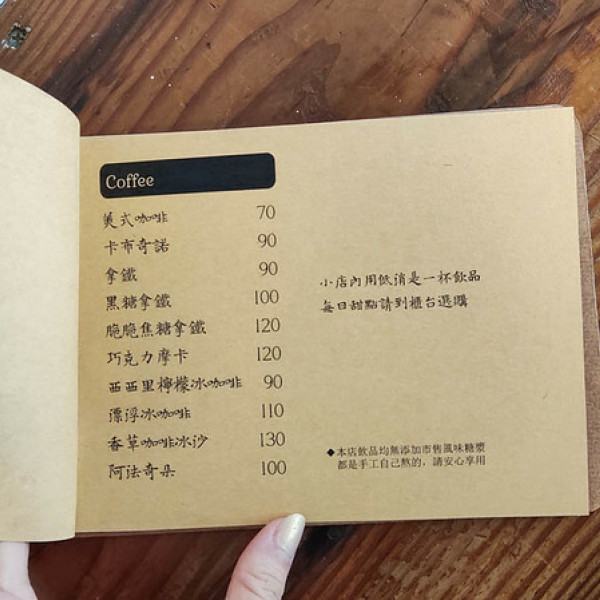 Coffee
美式咖啡 70
卡布奇諾 90
拿鐵 90
黑糖拿鐵 100
脆脆焦糖拿鐵 120
巧克力摩卡 120
西西里檸檬冰咖啡 90
漂浮冰咖啡 110
香草咖啡冰沙 130
阿法奇朵 100
小店內用低消是一杯飲品
每日甜點請到櫃台選購
◆本店飲品均無添加市售風味糖漿
都是手工自己熬的，請安心享用